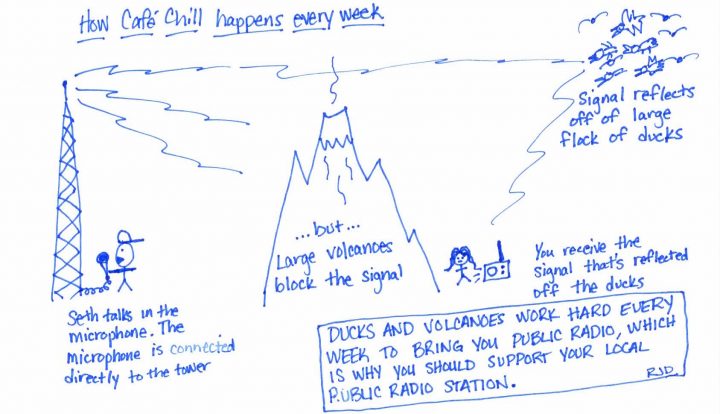 How Café Chill happens every week
Signal reflects
off of large
flock of ducks
...but...
Large volcanoes
block the signal
You receive the
signal that's reflected
off the ducks
Seth talks in the
microphone. The
microphone is connected
directly to the tower
DUCKS AND VOLCANOES WORK HARD EVERY
WEEK TO BRING YOU PUBLIC RADIO, WHICH
IS WHY YOU SHOULD SUPPORT YOUR LOCAL
PUBLIC RADIO STATION.
RJD.